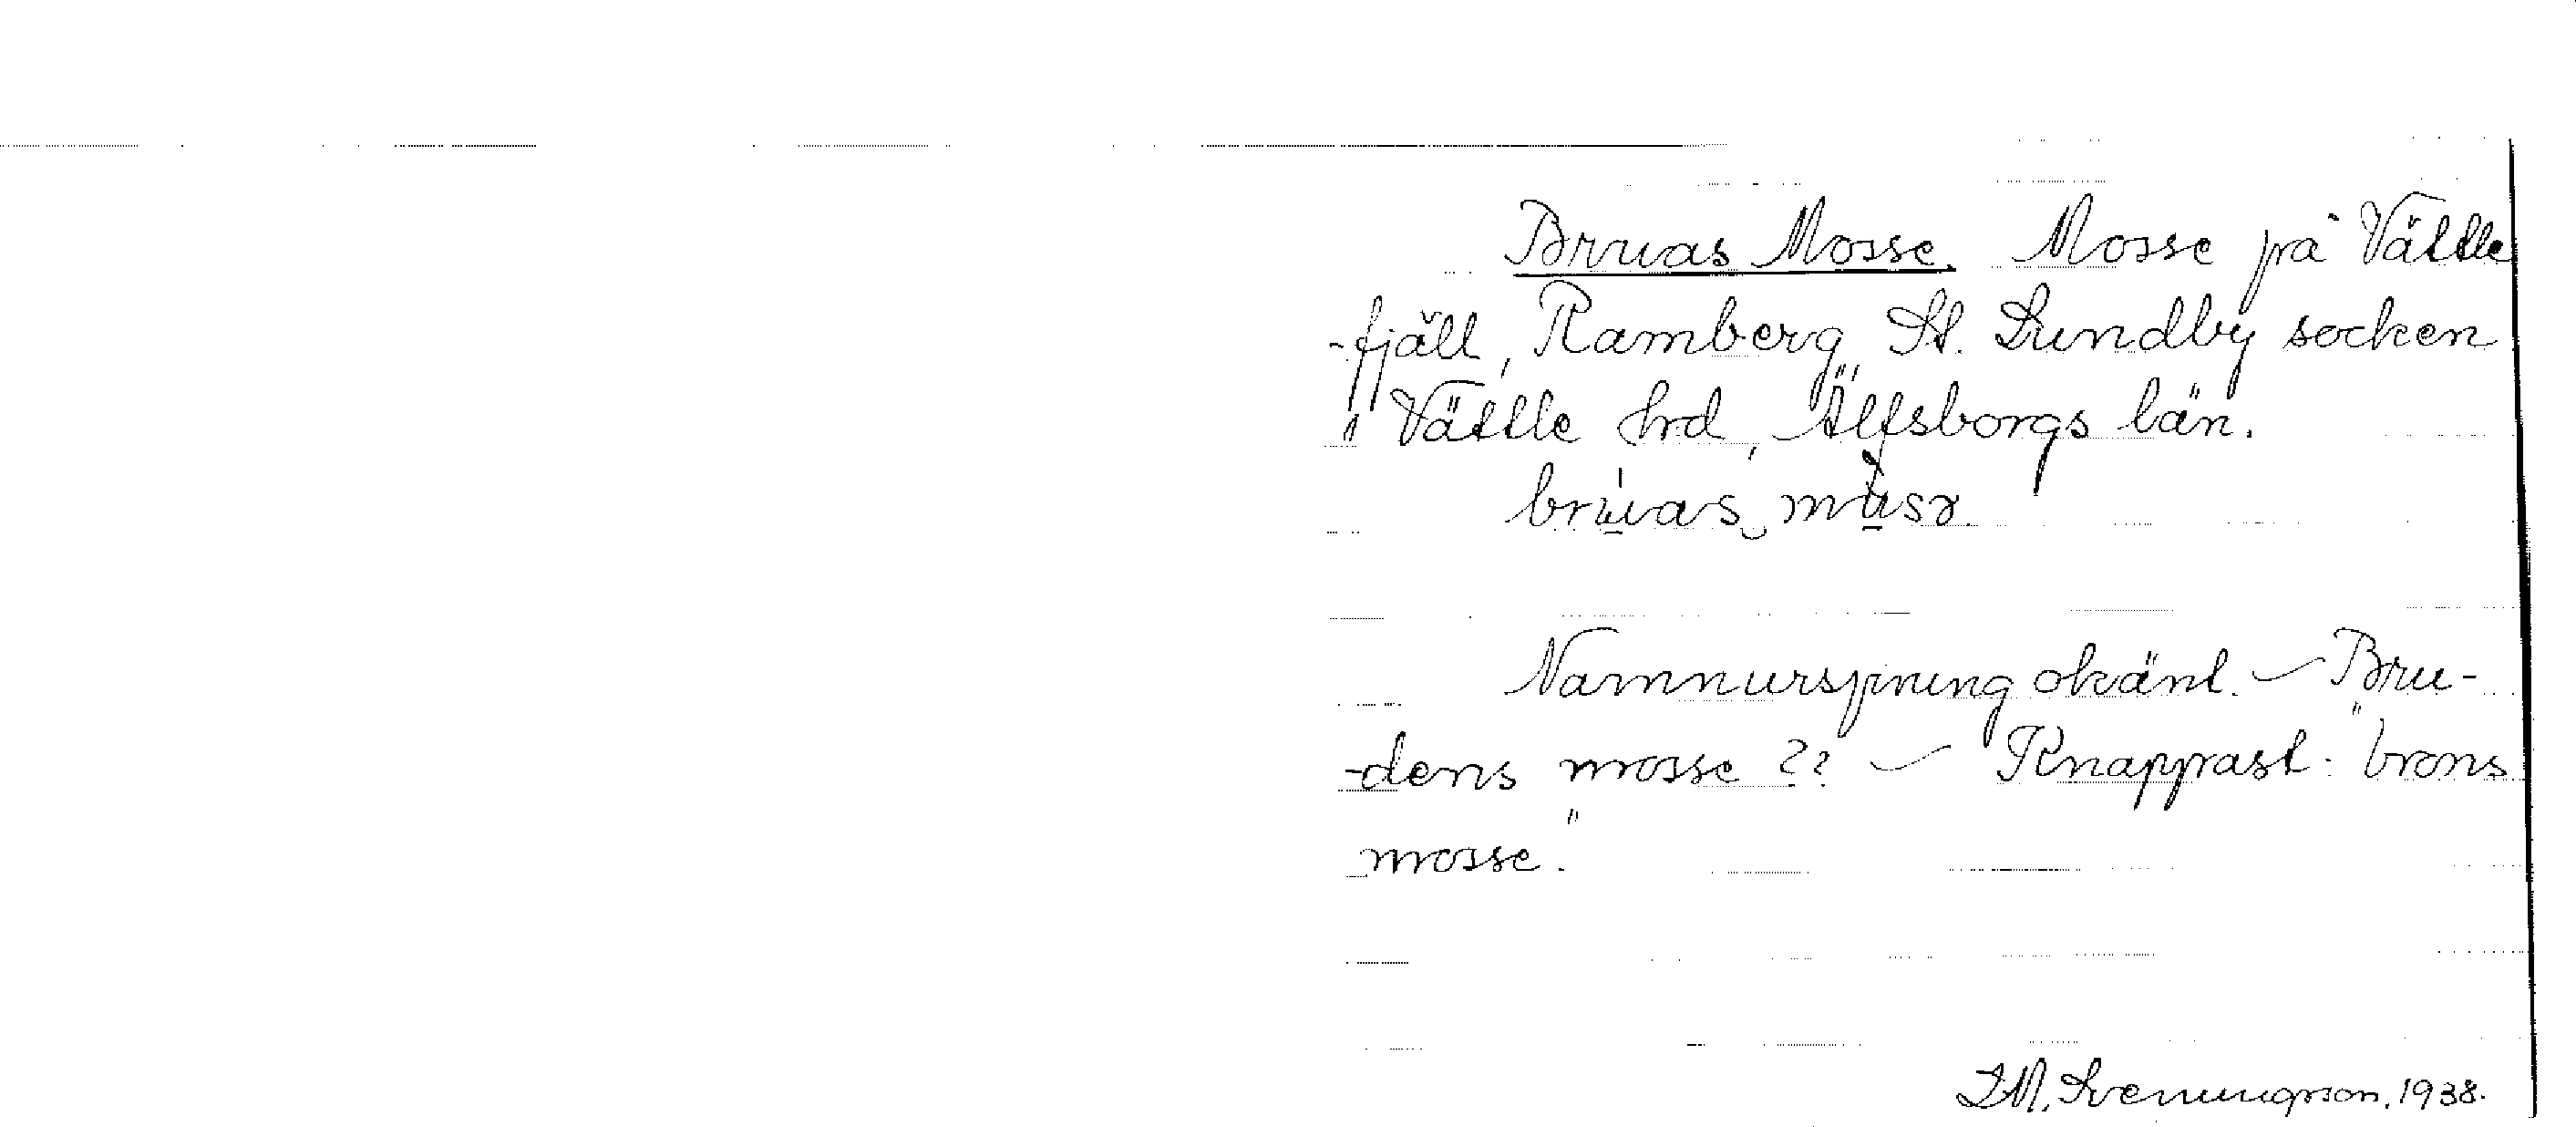 Bruas Mosse. Mosse på Vättle
-fjäll, Ramberg, St. Lundby socken
" Vättle hrd, Älfsborgs län.
brụas mụsə
Namnurspr­ung okänt. – Bru-
-dens mosse ?? – Knappast: "brons
mosse."
I.M. Sveningson. 1938.